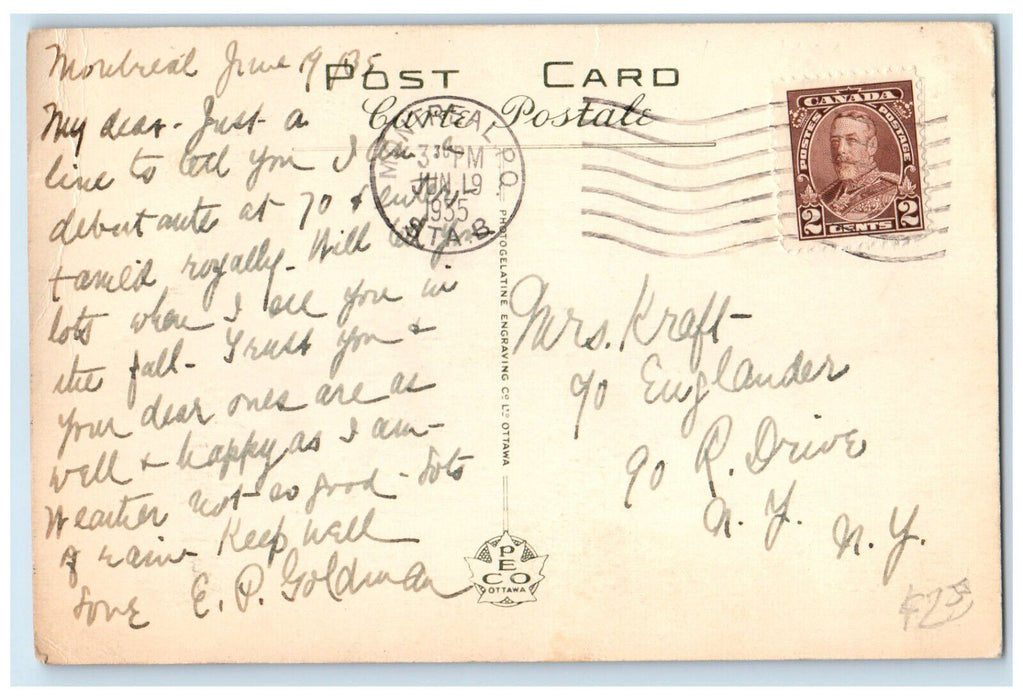 Montreal June 19 / 35
POST CARD
Carte Postale
My dear - Just a
line to tell you I am a
debutante at 70 & enter-
tained royally. Will tell you
lots when I see you in
the fall - Trust you &
your dear ones are as
well & happy as I am -
Weather not so good - lots
of rain Keep well
Love E. P. Goldman
MONTREAL P.Q.
3 30 PM
JUN 19
1935
STA B
CANADA
POSTES POSTAGE
2 CENTS 2
PHOTOGELATINE ENGRAVING CO. LTD. OTTAWA
Mrs. Kraft -
c/o Englander
90 R. Drive
N.Y. N.Y.
PECO
OTTAWA